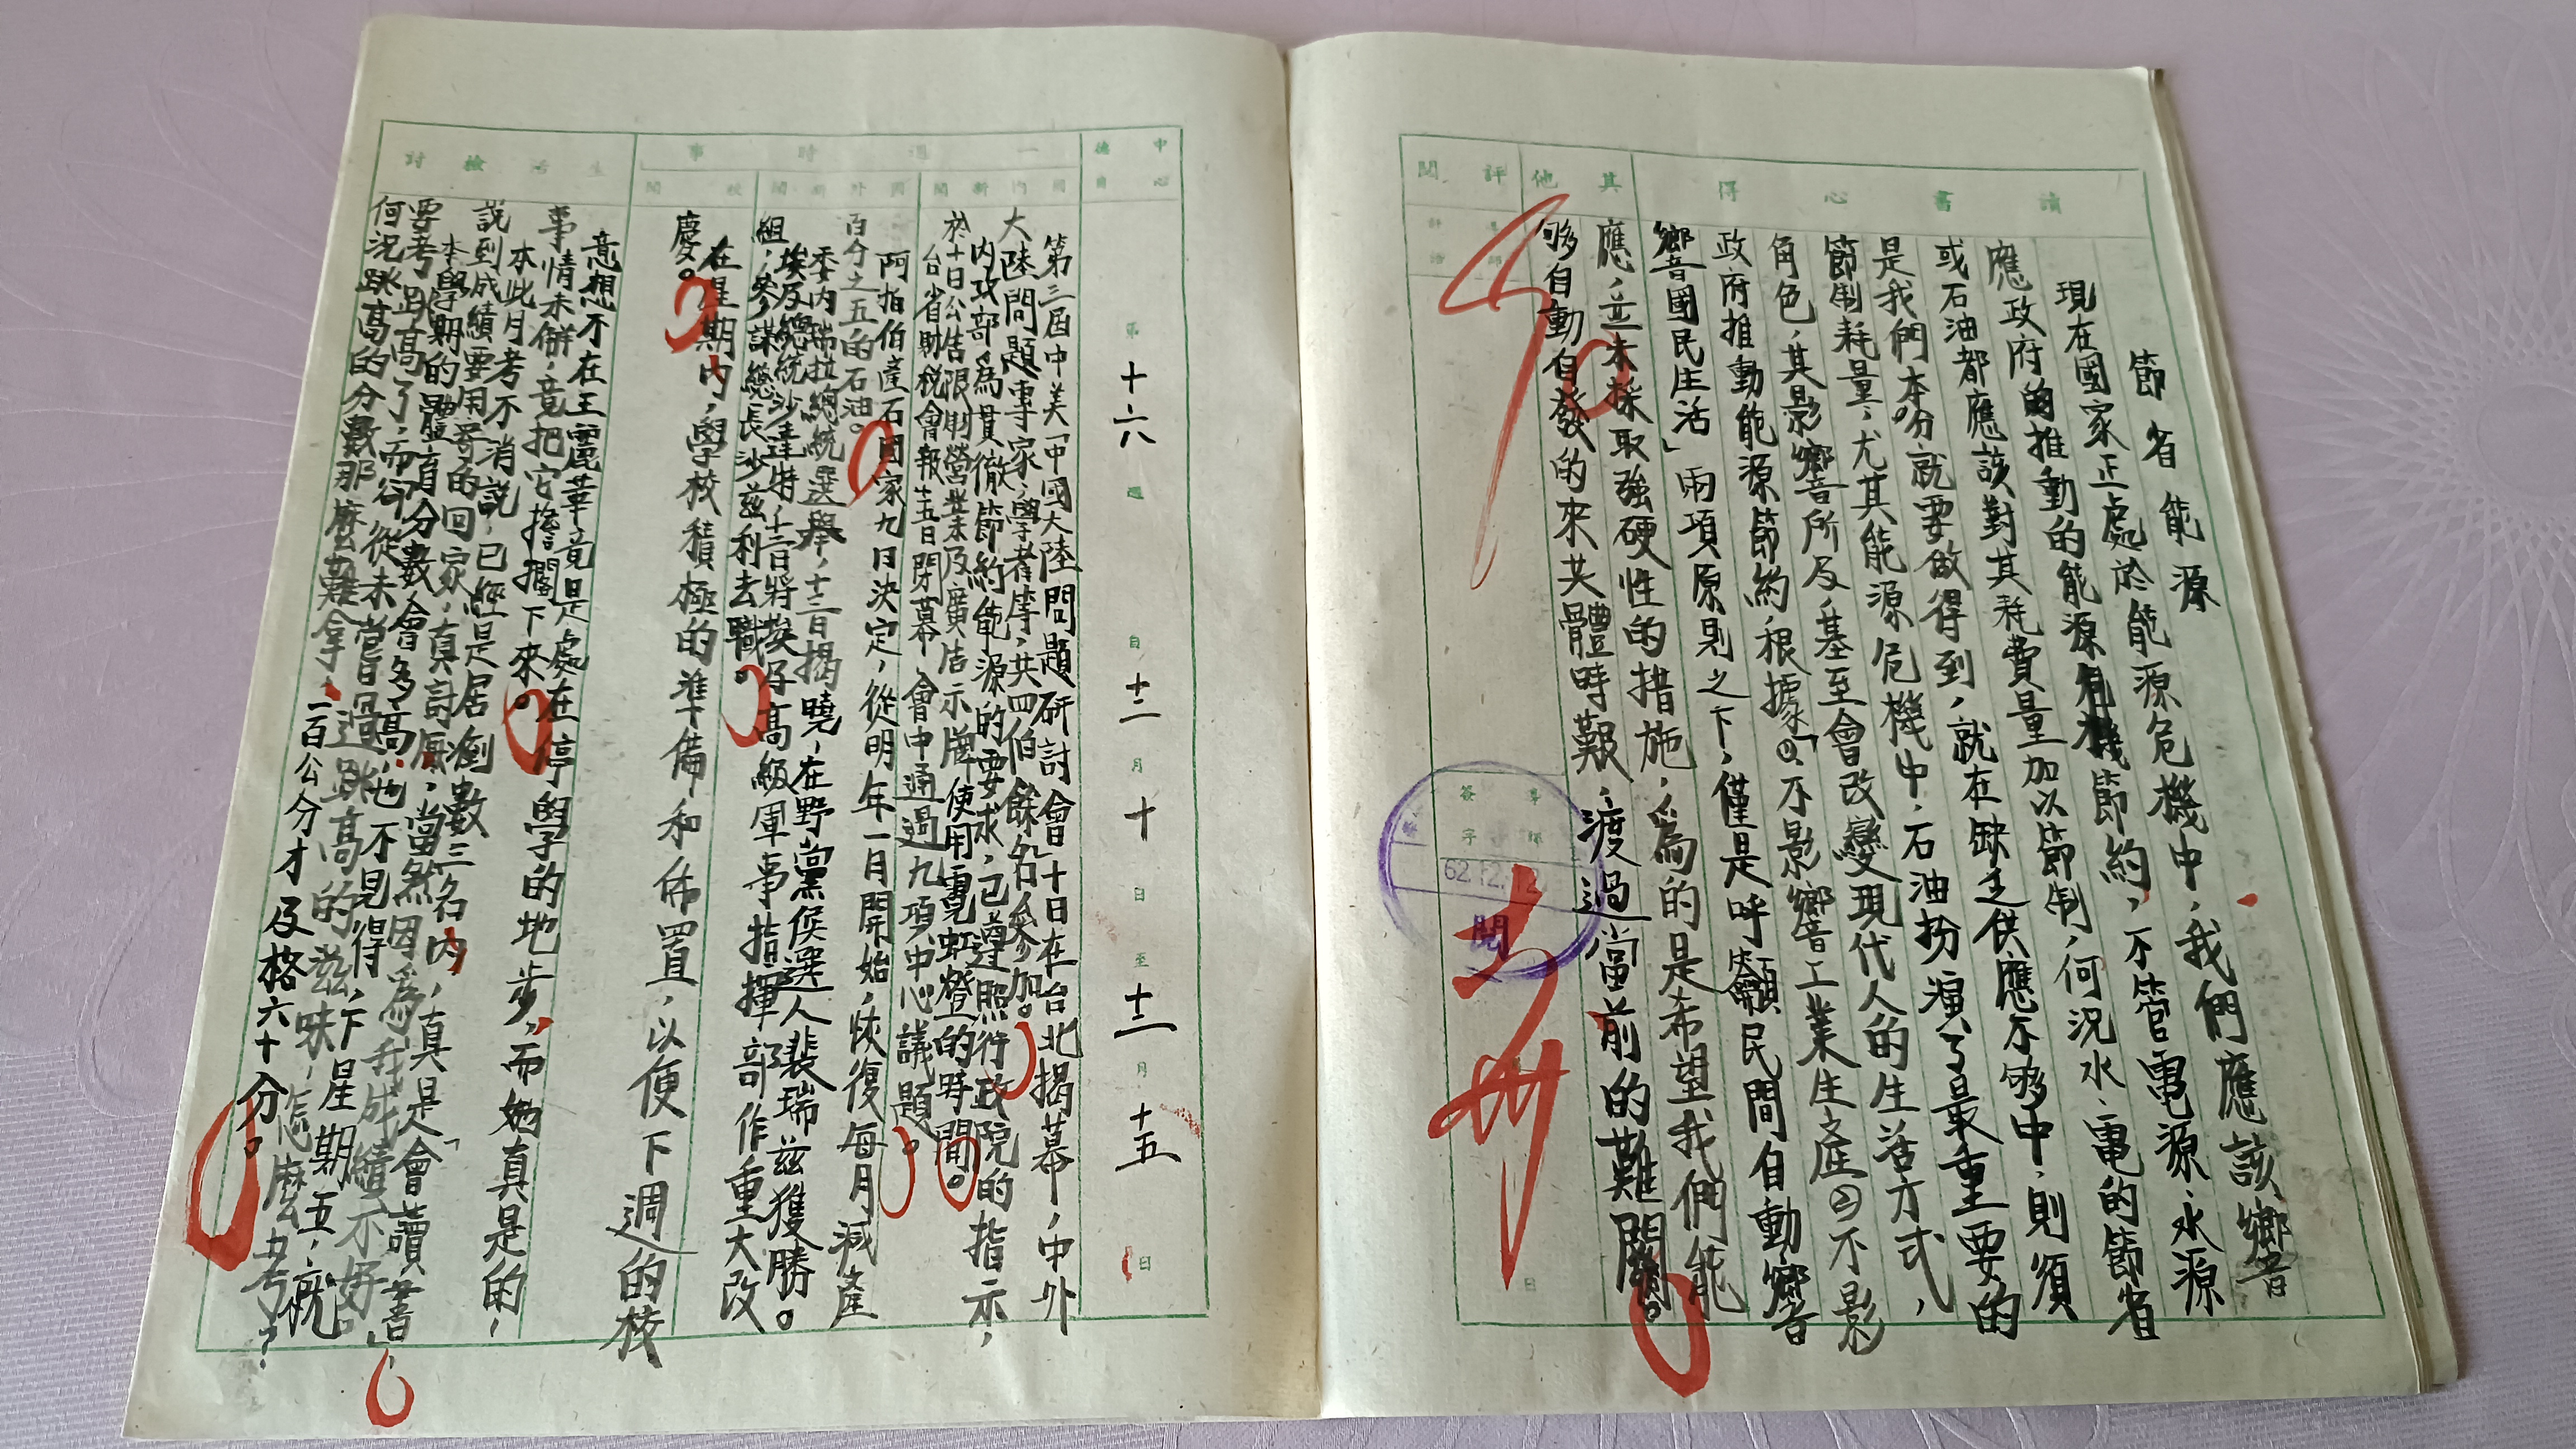 讀書心得
其他
評閱
導師評語
節省能源
現在國家正處於能源危機中，我們應該響
應政府的推動的能源危機節約，不管電源、水源
或石油都應該對其耗費量加以節制，何況水、電的節省
是我們本分就要做得到，就在缺乏供應不够中，則須
節制耗量，尤其能源危機中，石油扮演了最重要的
角色，其影響所及，甚至會改變現代人的生活方式，
政府推動能源節約，根據「㊀、不影響工業生產㊁不影
響國民生活」兩項原則之下，僅是呼籲民間自動響
應，並未採取強硬性的措施，為的是希望我們能
够自動自發的來共體時艱，渡過當前的難關。
90
導師簽字
62.12.12
閱
日
中心德目
第十六週
自十二月十日至十二月十五日
一週時事
國內新聞
國外新聞
校聞
生活檢討
第三屆中美「中國大陸問題研討會」十日在台北揭幕，中外
大陸問題專家、學者等，共四佰餘名參加。
內政部為貫徹節約能源的要求，已遵照行政院的指示，
於十日公告限制營業及廣告示牌使用霓虹燈的時間。
台省期稅會報十五日閉幕，會中通過九項中心議題。
阿拍伯產石國家九日決定，從明年一月開始，恢復每月減產
百分之五的石油。
委內瑞拉總統選舉，十二日揭曉，在野黨侯選人裴瑞兹獲勝。
埃及總統沙達特，十二日將埃及高級軍事指揮部作重大改
組，參謀總長沙兹利去職。
在星期內，學校積極的準備和佈置，以便下週的校
慶。
意想不在王麗華竟是處在停學的地步，而她真是的，
事情未辦，竟把它擔擱下來。
本此月考不消說，已經是居倒數三名內，真是「會讀書」，
說到成績要用哥的回家，真討厭，當然因為我成績不好。
本學期的體育分數，會多高，也不見得，下星期五，概
要考跳高了，而卻從未嘗過跳高的滋味，怎麼考？
何況跳高的分數那麼難拿，一百公分才及格六十分。